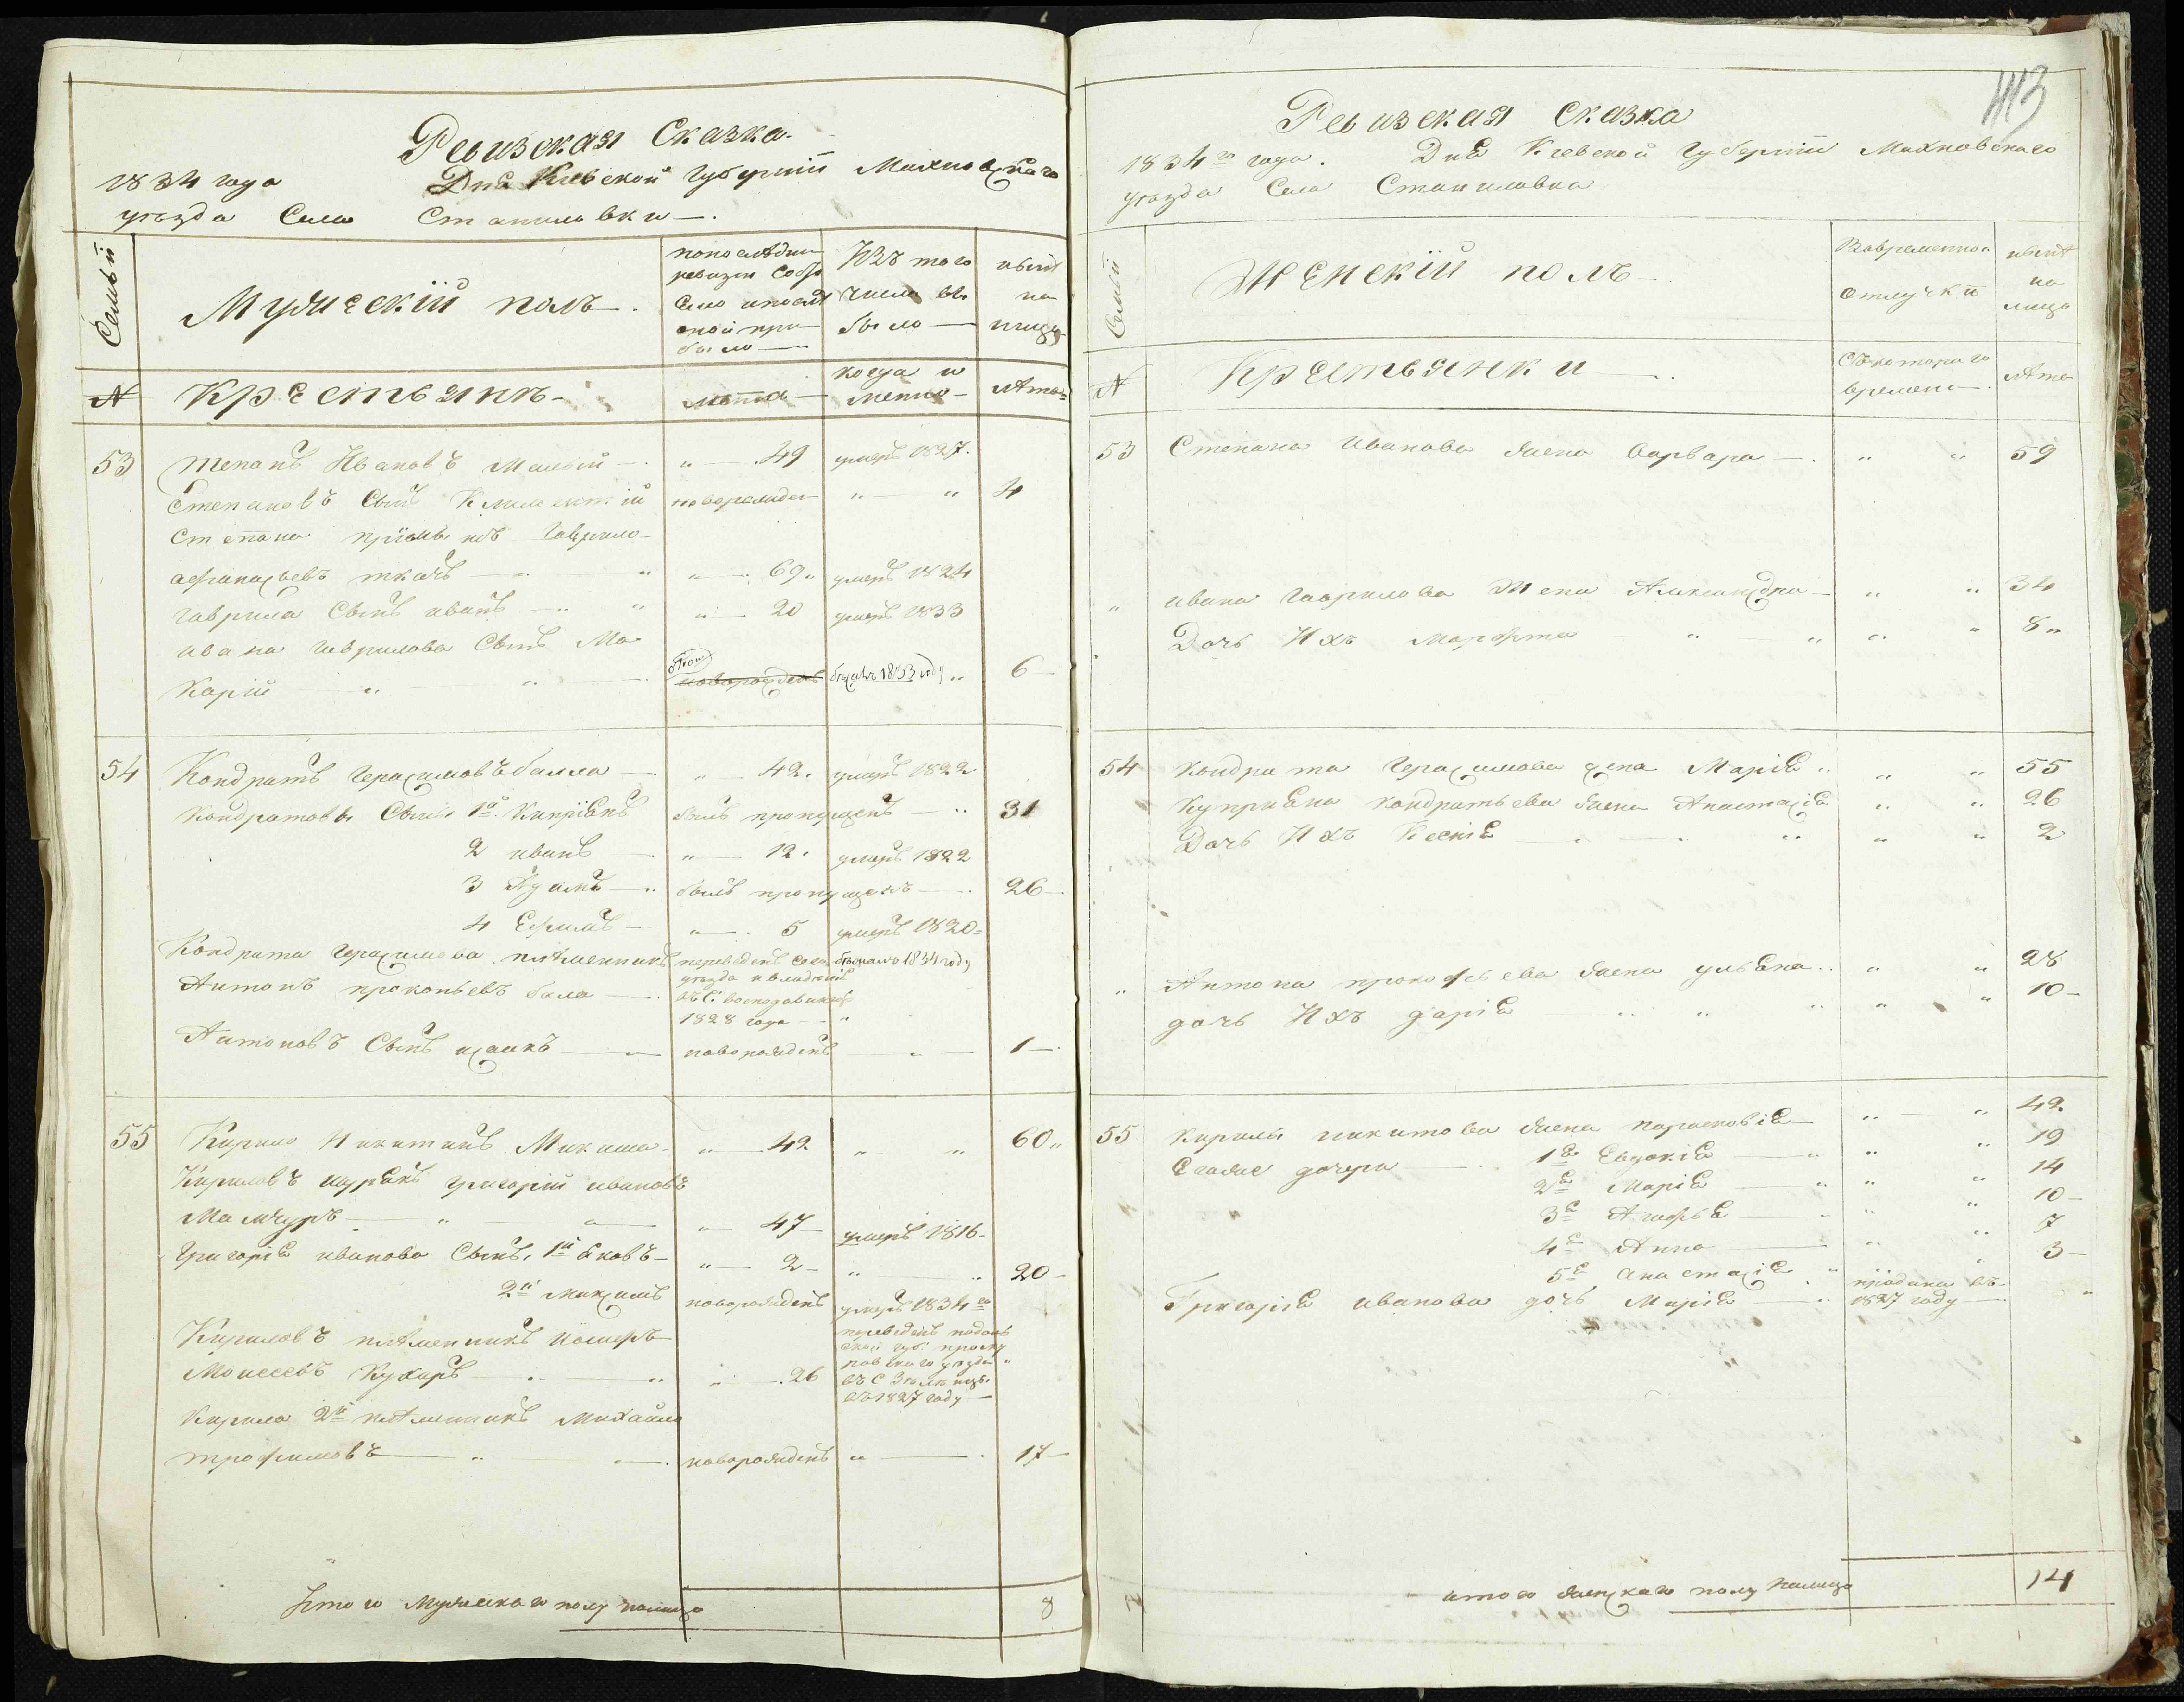 Ревизская Сказка.
1834 года Дня Киевской Губернии Махновскаго
уезда Села Станиловки
Семьи
Мужескій полъ.
по последней ревизіи состо
яло и после
оной при
было
Изъ того
числа вы
было
ныне
на
лицо
№
Крестьянъ
лета
когда и
менно
лета
53
Степанъ Ивановъ Малый
49
умеръ 1827.
Степановъ Сынъ Климентій
новорожден
4
Степана пріймакъ Гаврило
Афанасьевъ ткачъ
69
умеръ 1824
Гаврила Сынъ иванъ
20
умеръ 1833
ивана Гаврилова Сынъ Ма
карій
новорожденъ
бежалъ 1833 году
6
54
Кондратъ Герасимовъ балла
42.
умеръ 1822.
Кондратовы Сыны 1й Кипріянъ
былъ пропущенъ
31
2 иванъ
12.
умеръ 1822
3 Адамъ
былъ пропущенъ
26
4 Ефимъ
5
умеръ 1820
Кондрата Герасимова племенникъ
переведенъ сего
бежалъ 1834 году
Антонъ прокопьевъ бала
уезда
1828 года
Антоновъ Сынъ исаакъ
новорожденъ
1
55
Кирило Никитинъ Микиша
42
60
Кириловъ шурякъ Григорій ивановъ
Мамчуръ
47
умеръ 1816
Григорія иванова Сынъ 1й яковъ
2
20
2й Максимъ
новорожденъ
умеръ 1834го
Кириловъ племенникъ
Моисеевъ Кухаръ
26
переведенъ подоль
ской губ. проску
ровскаго уезда
въ 1827 году
Кирила 2й племенникъ Михайло
трофимовъ
новорожденъ
17
Итого Мужескаго полу налицо
8
113
Ревизская Сказка
1834го года. Дня Киевской Губерніи Махновскаго
уезда Села Станиловка
Семьи
Женскій полъ
Вовременной
отлучки
ныне
на
лицо
№
Крестьянки
Съкотораго
времени
лета
53
Степана Иванова жена Варвара
59
ивана Гаврилова Жена Александра
34
Дочь Ихъ Марфта
8
54
Кондрата Герасимова жена Марія
55
Купріяна Кондратьева жена Анастасія
26
Дочь Ихъ Ксенія
2
Антона прокофьева жена ульяна
28
дочь Ихъ дарія
10
55
Кирилы никитова жена параскевія
42.
Егоже дочери 1я Евдокія
19
2я Марія
14
3я Агафья
10
4я Анна
7
5я анастасія
3
Григорія иванова дочь Марія
продана въ
1827 году
итого женскаго полу налицо
14